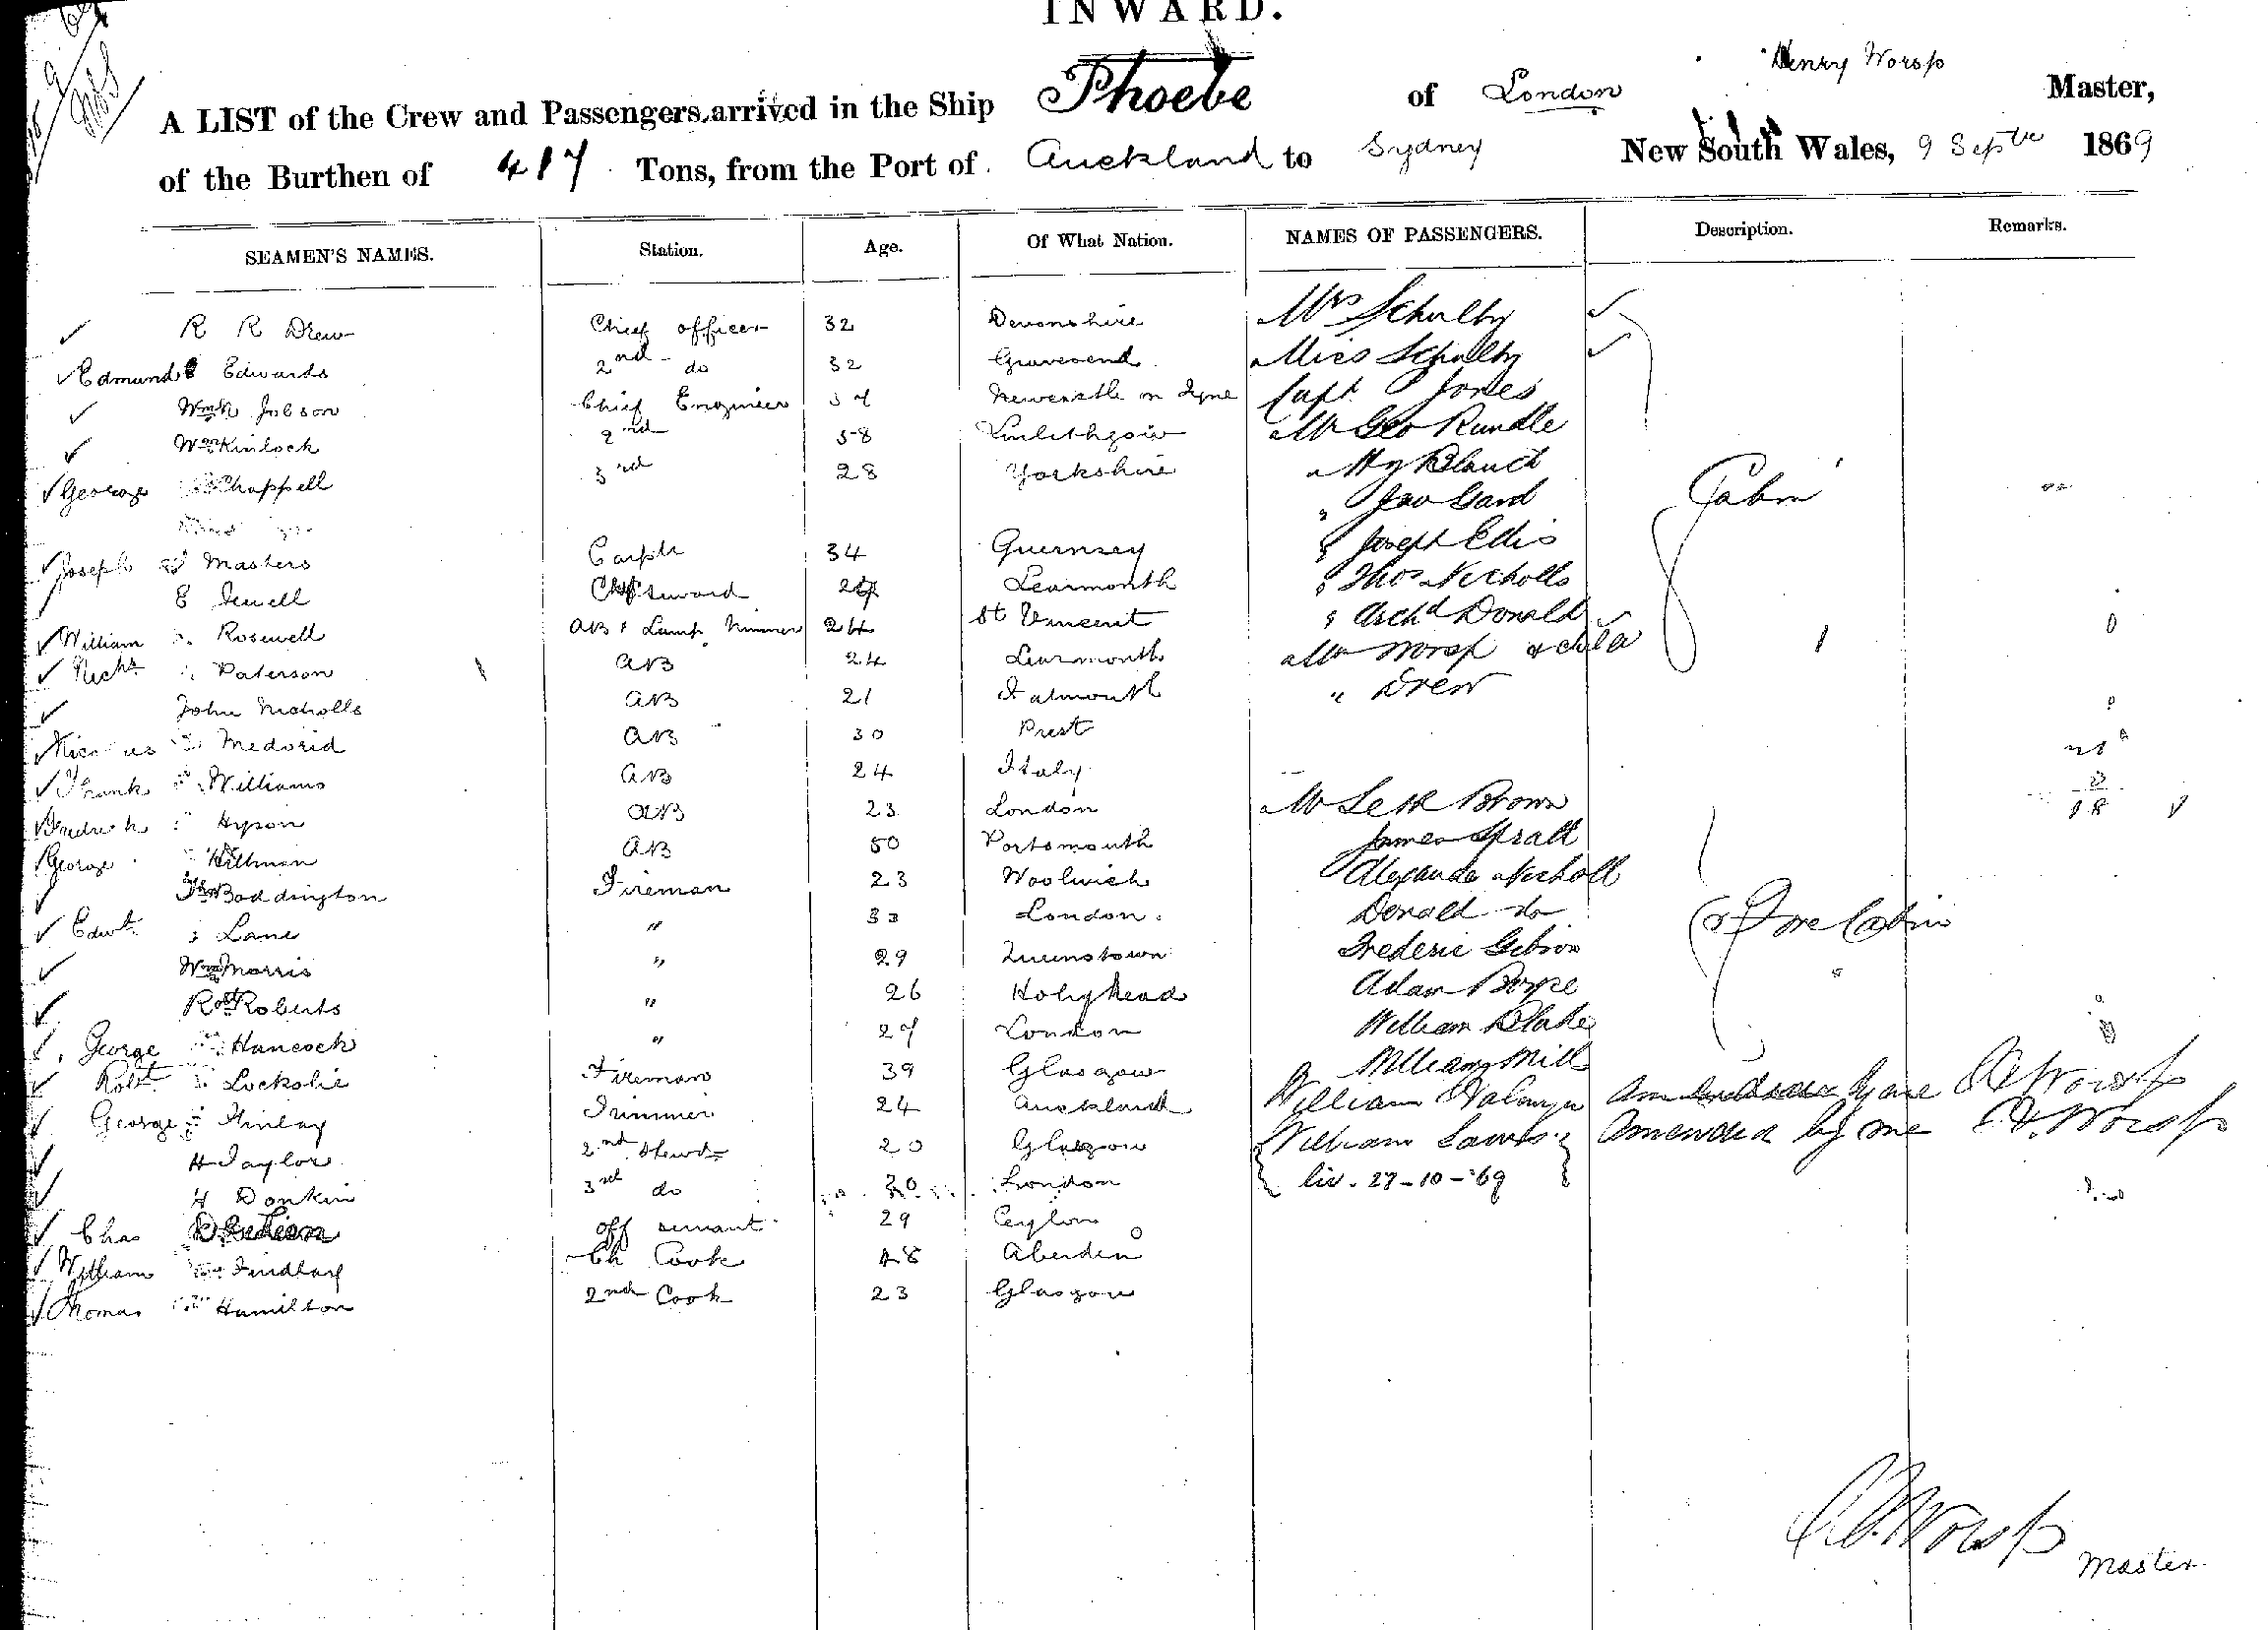 INWARD.
Henry Worsp
A LIST of the Crew and Passengers arrived in the Ship Phoebe of London Master,
of the Burthen of 417 Tons, from the Port of Auckland to Sydney New South Wales, 9 Septr 1869
SEAMEN'S NAMES. Station. Age. Of What Nation. NAMES OF PASSENGERS. Description. Remarks.
R R Drew Chief officer 32 Devonshire Mrs
Edmund Edwards 2nd do 32 Gravesend Miss
Wm Jobson Chief Engineer 37 Newcastle on Tyne Capt Jones
Wm Kinlock 2nd 58 Linlithgow Mr Geo Rundle
George Chappell 3rd 28 Yorkshire Hy Blanch
Cabin
Joseph Masters Carptr 34 Guernsey Joseph Ellis
E Jewell 27 Learmonth Thos Nicholls
William Rosewell AB & Lamp Trimmer 24 St Vincent Archd Donald
Richd Paterson AB 24 Learmonth Mrs Worsp & child
John Nicholls AB 21 Falmouth " Drew
Medorid AB 30 Brest
Frank Williams AB 24 Italy
Hyson AB 23 London Mr Seth Brown
George Hillman AB 50 Portsmouth James Spratt
Boddington Fireman 23 Woolwich Alexander Nicholl
Edwd Lane " 33 London Donald do
Fore Cabin
Wm Morris " 29 Queenstown Frederic Gibson
Robt Roberts " 26 Holyhead Adam
George Hancock " 27 London William Blake
Robt Lockslie Fireman 39 Glasgow William Mill
George Finlay Trimmer 24 Auckland William by me H Worsp
H Taylor 2nd Stewd 20 Glasgow William Amended by me H. Worsp
H Donkin 3rd do 20 London liv. 27-10-'69
Chas off servant 29 Ceylon
William Findlay Ch Cook 48 Aberdeen
Thomas Hamilton 2nd Cook 23 Glasgow
H Worsp
Master